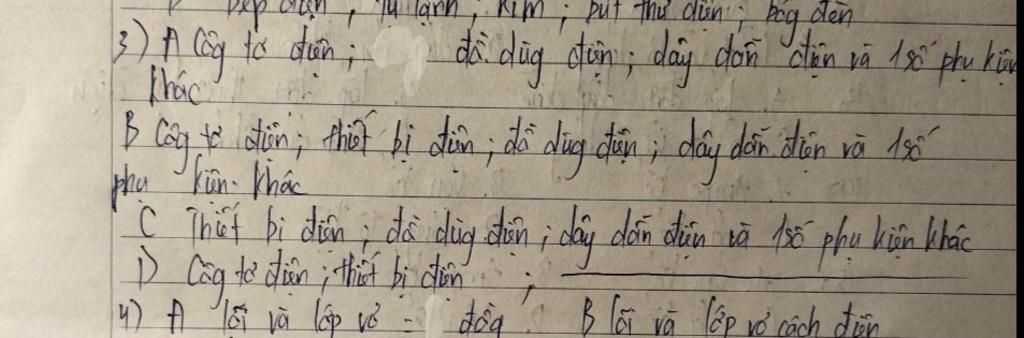 bếp điện, tủ lạnh, kìm; bút thử điện; bóg đèn
3) A Côg tơ điện; đồ dùg điện; dây dẫn điện và 1 số phụ kiện
khác
B Côg tơ điện; thiết bị điện; đồ dùg điện; dây dẫn điện và 1 số
phụ kiện khác
C Thiết bị điện; đồ dùg điện; dây dẫn điện và 1 số phụ kiện khác
D Côg tơ điện; thiết bị điện ;
4) A lõi và lớp vỏ = đồg B lõi và lớp vỏ cách điện